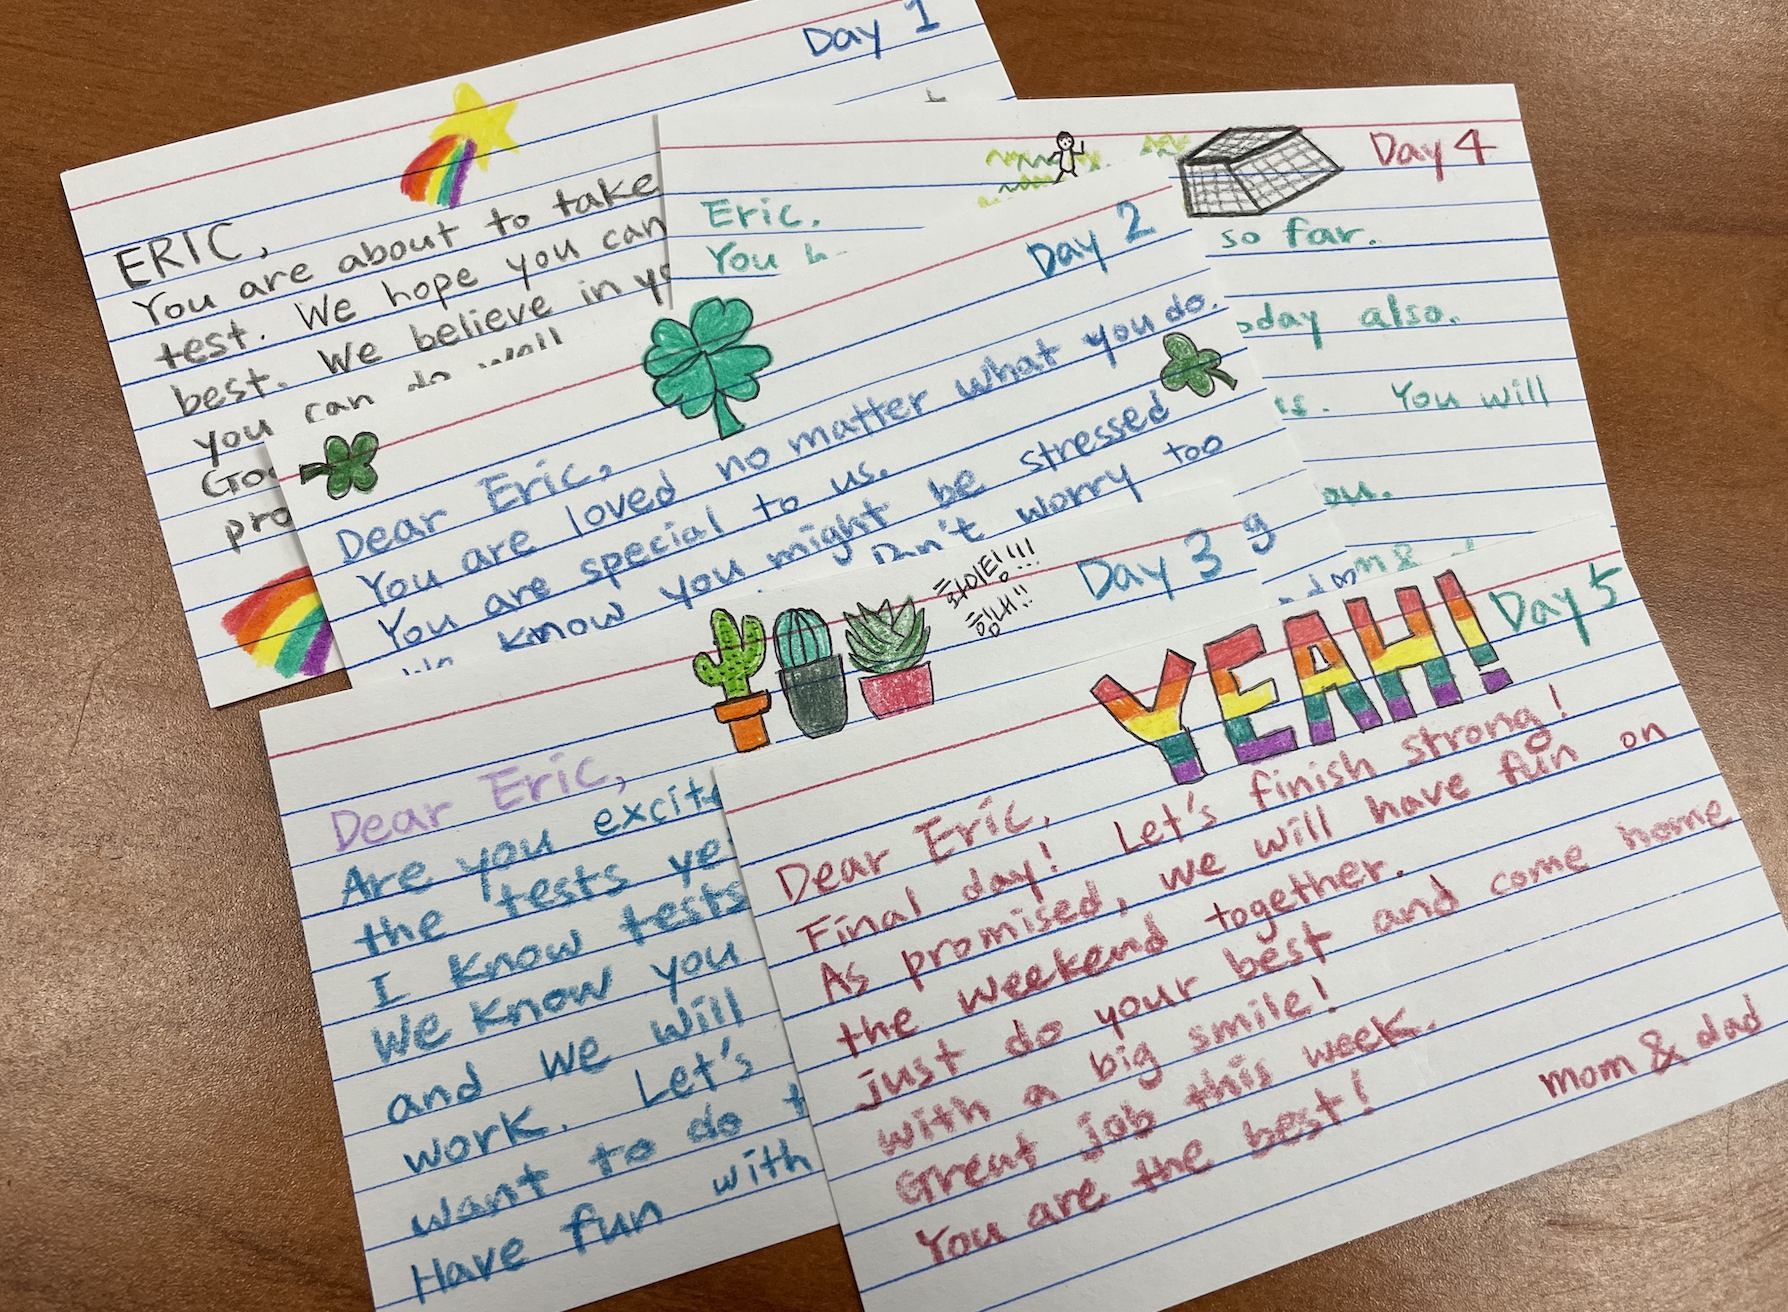 Day 1
ERIC,
You are about to take
test. We hope you can
best. We believe in
you can do well
pro
Day 4
Eric.
You
so far.
also.
You will
Day 2
Dear Eric,
You are loved no matter what you do.
You are special to us.
know you might be stressed
Don't worry too
Day 3
화이팅!!!
힘내!!
Dear Eric,
Are you
the tests
I know tests
We know you
and we will
work. Let's
want to do
Have fun with
YEAH!
Day 5
Dear Eric,
Final day! Let's finish strong!
As promised, we will have fun on
the weekend together.
just do your best and come home
with a big smile!
Great job this week.
You are the best!
mom & dad